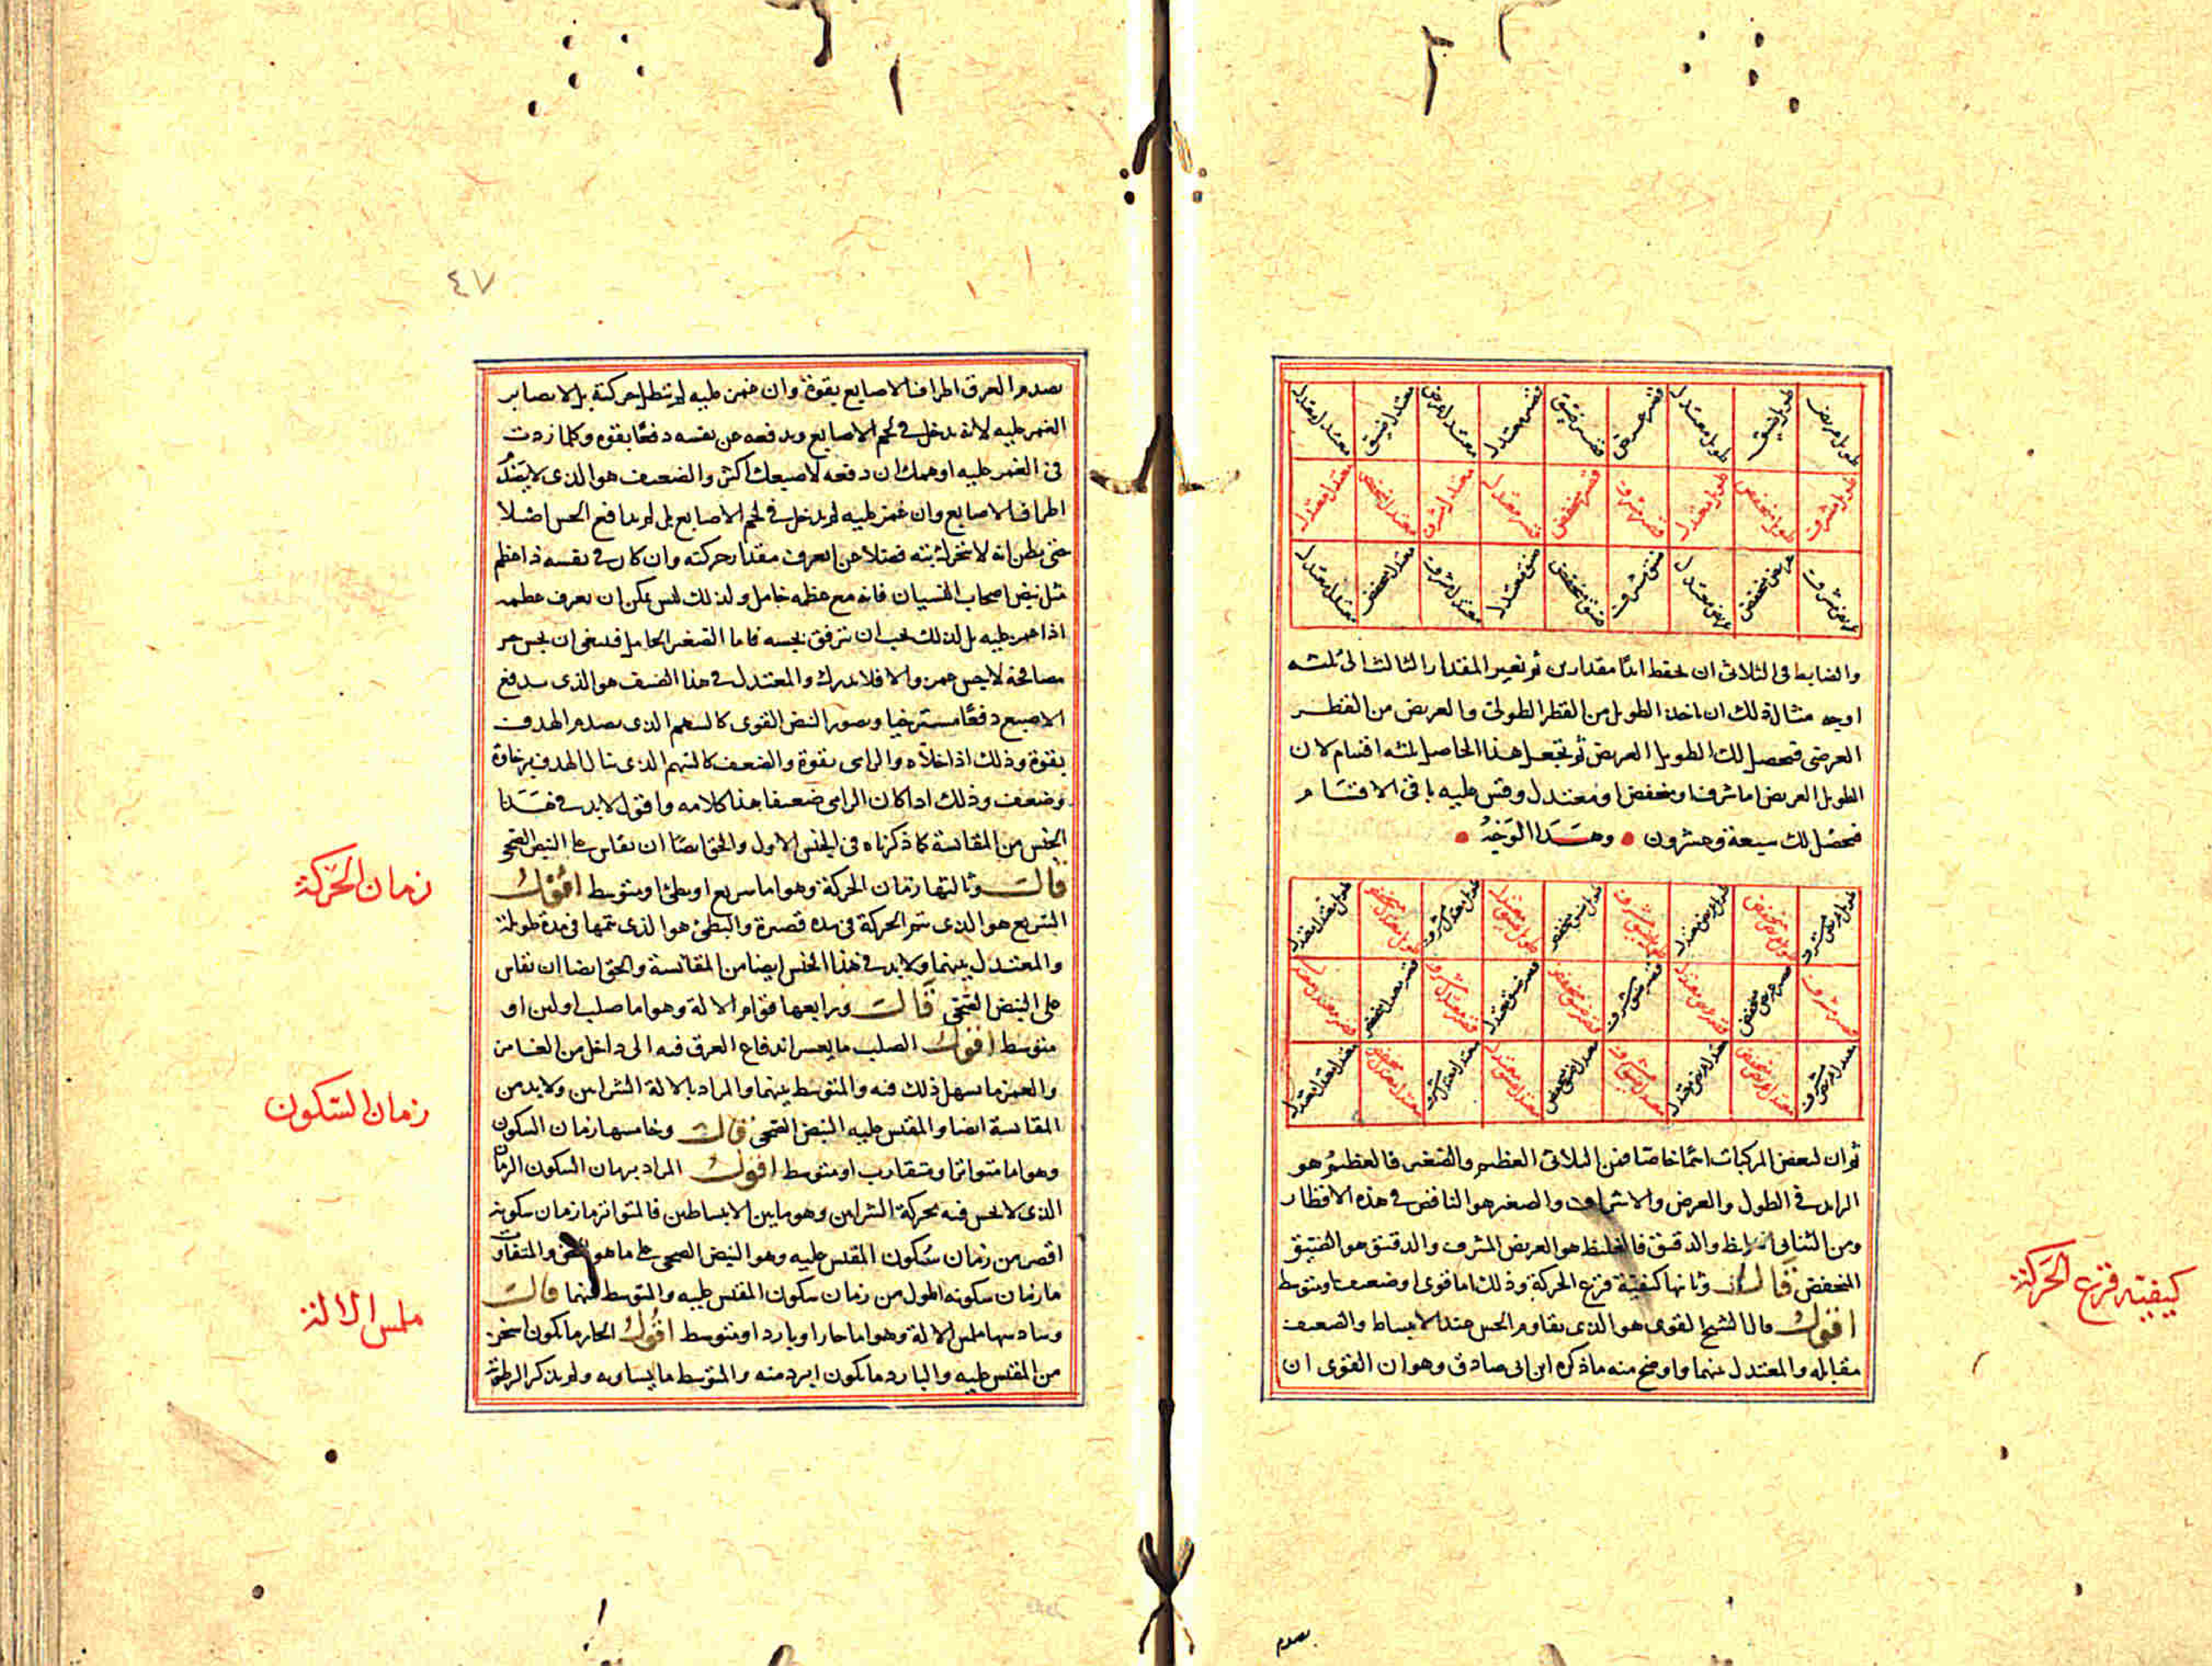 طويل عريض طويل ضيق طويل معتدل قصير عريض قصير ضيق قصير معتدل معتدل عريض معتدل ضيق معتدل معتدل
طويل مشرف طويل منخفض طويل معتدل قصير مشرف قصير منخفض قصير معتدل معتدل مشرف معتدل منخفض معتدل معتدل
عريض مشرف عريض منخفض عريض معتدل ضيق مشرف ضيق منخفض ضيق معتدل معتدل مشرف معتدل منخفض معتدل معتدل
والضابط فى الثلاثى ان تحفظ ابدًا مقدارين ثم تعتبر المقدار الثالث الى ثلثه
اوجه مثال ذلك ان ناخذ الطويل من القطر الطولى والعريض من القطر
العرضى فحصل لك الطويل العريض ثم تجعل هذا الحاصل ثلثه اقسام لان
الطويل العريض اما مشرف او منخفض او معتدل وقس عليه باقى الاقسام
فحصل لك سبعة وعشرون وهذا الوجه
طويل عريض مشرف طويل عريض منخفض طويل عريض معتدل طويل ضيق مشرف طويل ضيق منخفض طويل ضيق معتدل طويل معتدل مشرف طويل معتدل منخفض طويل معتدل معتدل
قصير مشرف قصير عريض منخفض قصير عريض معتدل قصير ضيق مشرف قصير ضيق منخفض قصير ضيق معتدل قصير معتدل مشرف قصير معتدل منخفض قصير معتدل معتدل
معتدل عريض مشرف معتدل عريض منخفض معتدل عريض معتدل معتدل ضيق مشرف معتدل ضيق منخفض معتدل ضيق معتدل معتدل معتدل مشرف معتدل معتدل منخفض معتدل معتدل معتدل
ثم ان لبعض المركبات اسمًا خاصًا فمن الثلاثى العظيم والصغير فالعظيم هو
الزايد فى الطول والعرض والاشراف والصغير هو الناقص فى هذه الاقطار
ومن الثنائى الغليظ والدقيق فالغليظ هو العريض المشرف والدقيق هو الضيق
المنخفض قال وثانيها كيفية قرع الحركة وذلك اما قوى او ضعيف او متوسط
اقول قال الشيخ القوى هو الذى يقاوم الحس عند الانبساط والضعيف
مقابله والمعتدل بينهما واوضح منه ما ذكره ابن ابى صادق وهو ان القوى ان
كيفية قرع الحركة
يصدم
٤٧
يصدم العرق اطراف الاصابع بقوة وان غمز عليه لم تبطل حركته بل لا يصابر
الغمز عليه لانه يدخل فى لحم الاصابع ويدفعه عن نفسه دفعًا بقوه وكلما زدت
فى الغمز عليه اوهمك ان دفعه لاصبعك اكثر والضعيف هو الذى لا
اطراف الاصابع وان غمز عليه لم يدخل فى لحم الاصابع بل لم يدافع الحس اصلا
حتى يظن انه لا يتحرك بتة فضلا عن ان يعرف مقدار حركته وان كان فى نفسه ذا عظم
مثل نبض اصحاب الغشيان فانه مع عظمه خامل ولذلك ليس يمكن ان يعرف عظمه
اذا غمز عليه بل لذلك يجب ان يترفق بجسه فاما الصغير الخامل فينبغى ان يجس جس
مصافحة لا يجس غمز والا فلا يدرك والمعتدل فى هذا الصنف هو الذى يدفع
الاصبع دفعًا مسترخيا وتصور النبض القوى كالسهم الذى يصدم الهدف
بقوة وذلك اذا خلاه والرامى بقوة والضعيف كالسهم الذى ينال الهدف برخاوة
وضعف وذلك اذا كان الرامى ضعيفا هذا كلامه واقول لابد فى هذا
الجنس من المقايسة كما ذكرناه فى الجنس الاول والحق ايضًا ان يقاس على النبض الصحى
قال وثالثها زمان الحركة وهو اما سريع او بطئ او متوسط اقول
السريع هو الذى يتم الحركة فى مدة قصيرة والبطئ هو الذى يتمها فى مدة طويلة
والمعتدل بينهما ولابد فى هذا الجنس ايضا من المقايسة والحق ايضا ان يقاس
على النبض الصحى قال ورابعها قوام الالة وهو اما صلب او لين او
متوسط اقول الصلب ما يعسر اندفاع العرق فيه الى داخل من الغامز
والغمز ما سهل ذلك فيه والمتوسط بينهما والمراد بالالة الشرايين ولابد من
المقايسة ايضا والمقيس عليه النبض الصحى قال وخامسها زمان السكون
وهو اما متواتر او متقارب او متوسط اقول المراد بزمان السكون الزمان
الذى لا يحس فيه بحركة الشرايين وهو ما بين الانبساطين فالمتواتر ما زمان سكونه
اقصر من زمان سكون المقيس عليه وهو النبض الصحى على ما هو الحق والمتفاوت
ما زمان سكونه اطول من زمان سكون المقيس عليه والمتوسط بينهما قال
وسادسها ملمس الالة وهو اما حار او بارد او متوسط اقول الحار ما يكون اسخن
من المقيس عليه والبارد ما يكون ابرد منه والمتوسط ما يساويه ولم يذكر الرطوبة
زمان الحركة
زمان السكون
ملمس الالة